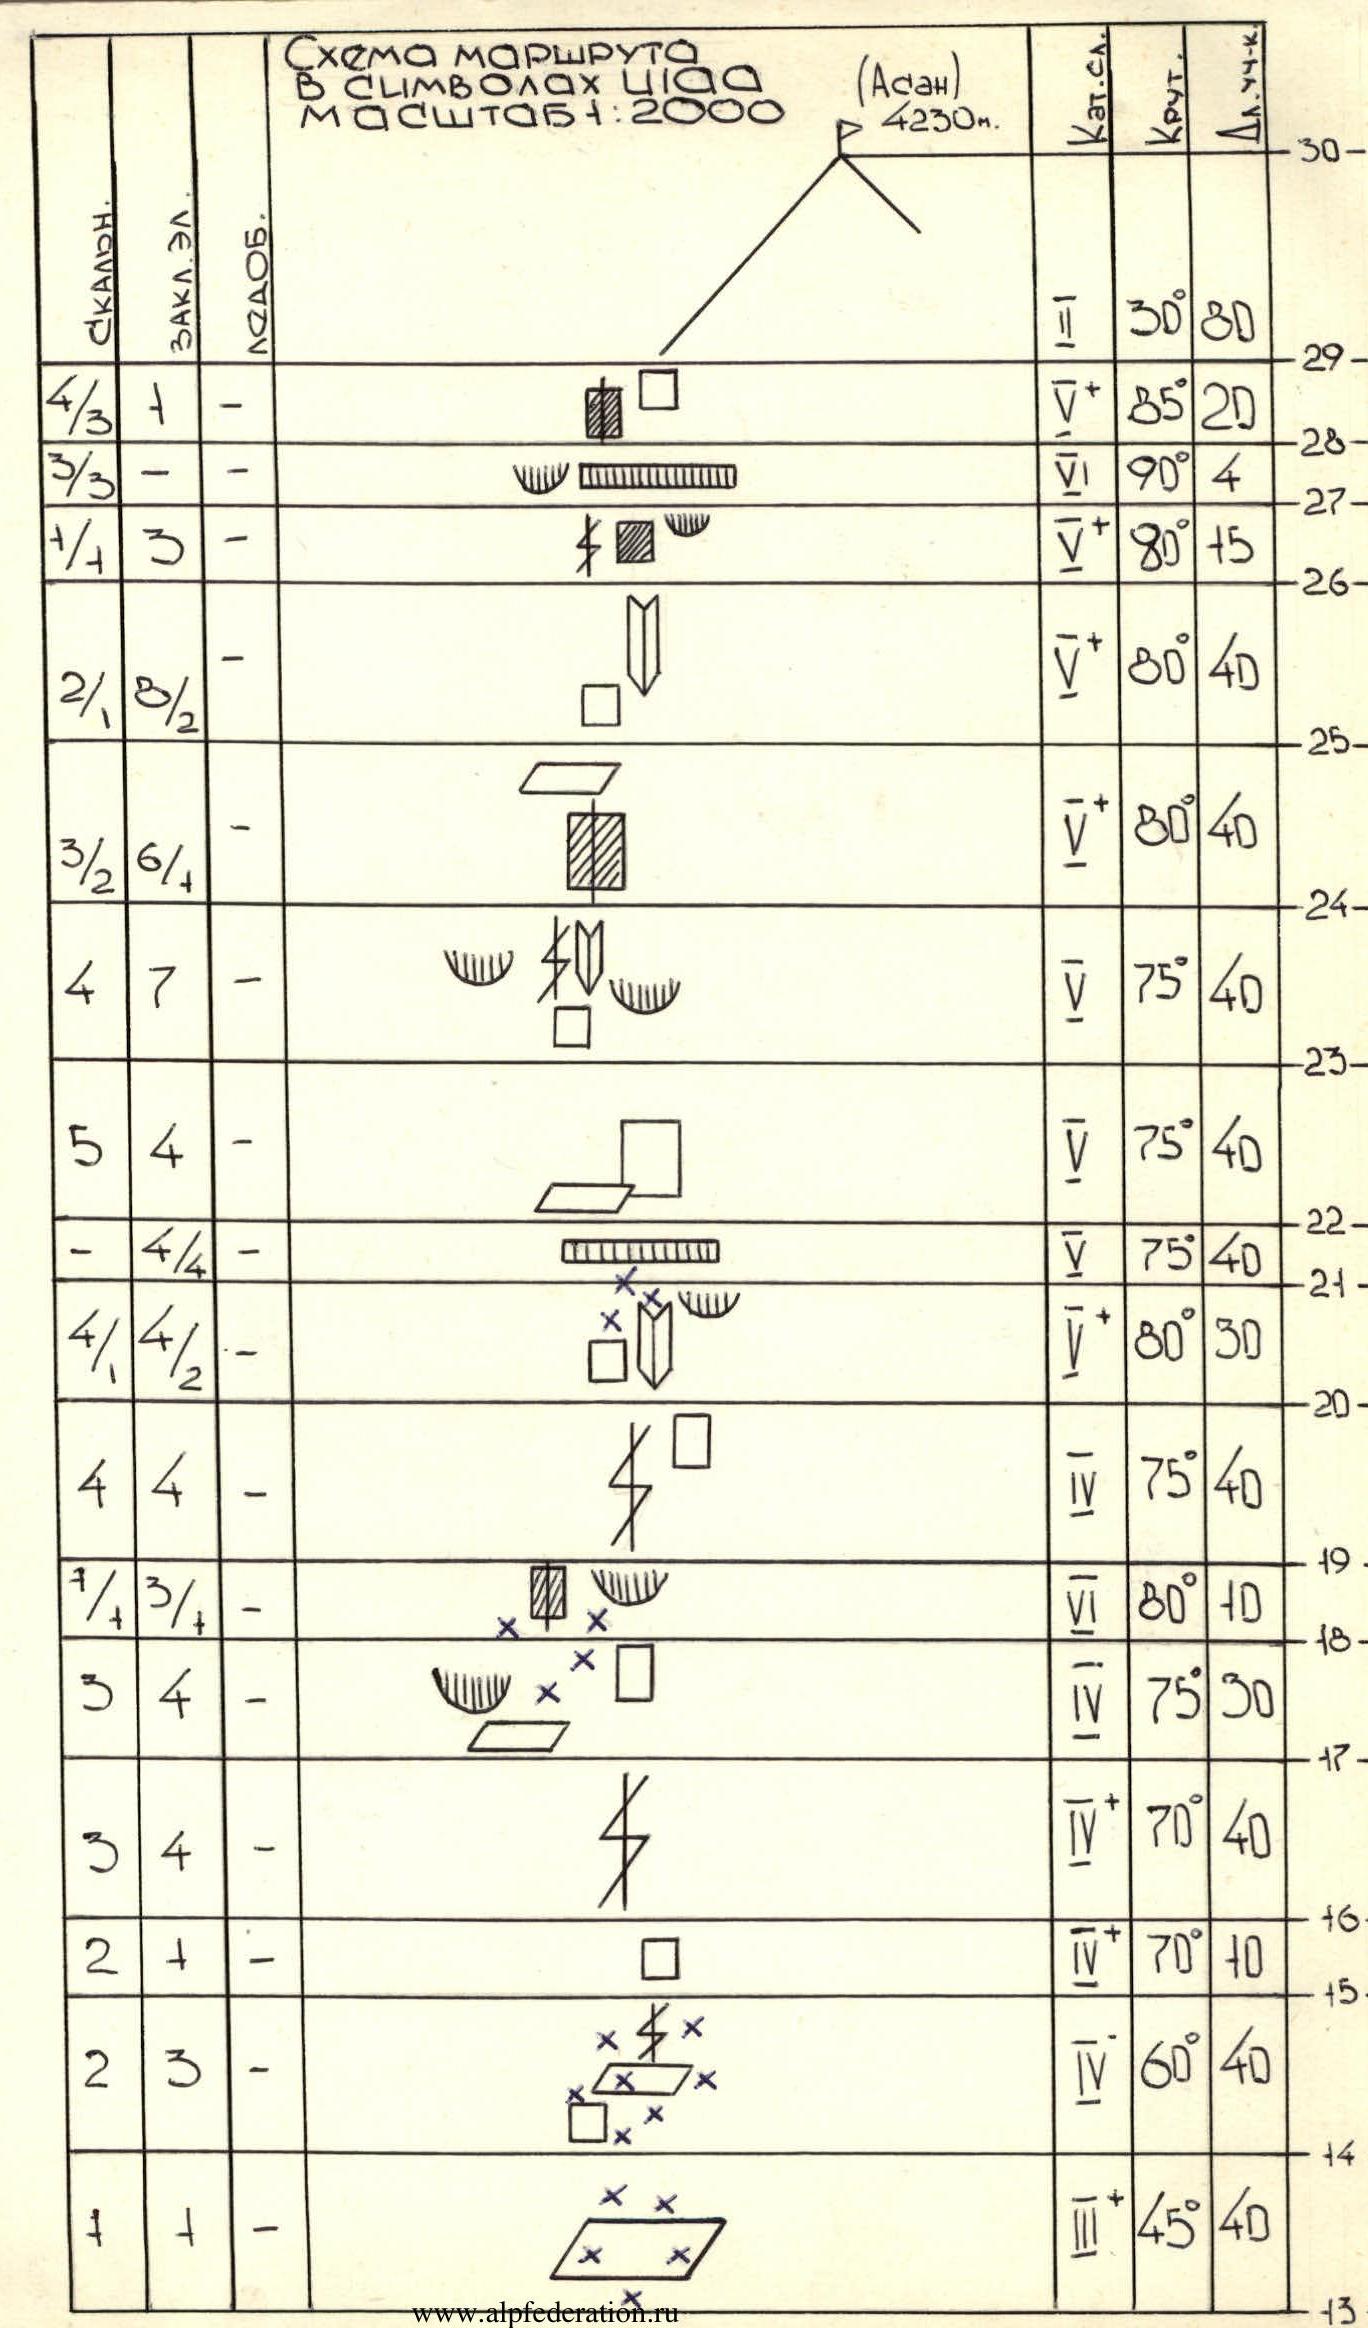 Схема маршрута
в символах UIAA
масштаб 1:2000
(Асан)
4230м.
скальн. закл. эл. ледоб. Кат.сл. Крут. Дл. уч-к.
30
II 30° 80
29
4/3 1 - V+ 85° 20
28
3/3 - - VI 90° 4
27
1/1 3 - V+ 80° 15
26
2/1 8/2 - V+ 80° 40
25
3/2 6/1 - V+ 80° 40
24
4 7 - V 75° 40
23
5 4 - V 75° 40
22
- 4/4 - V 75° 40
21
4/1 4/2 - V+ 80° 30
20
4 4 - IV 75° 40
19
1/1 3/1 - VI 80° 10
18
3 4 - IV 75° 30
17
3 4 - IV+ 70° 40
16
2 1 - IV+ 70° 10
15
2 3 - IV- 60° 40
14
1 1 - III+ 45° 40
13
www.alpfederation.ru